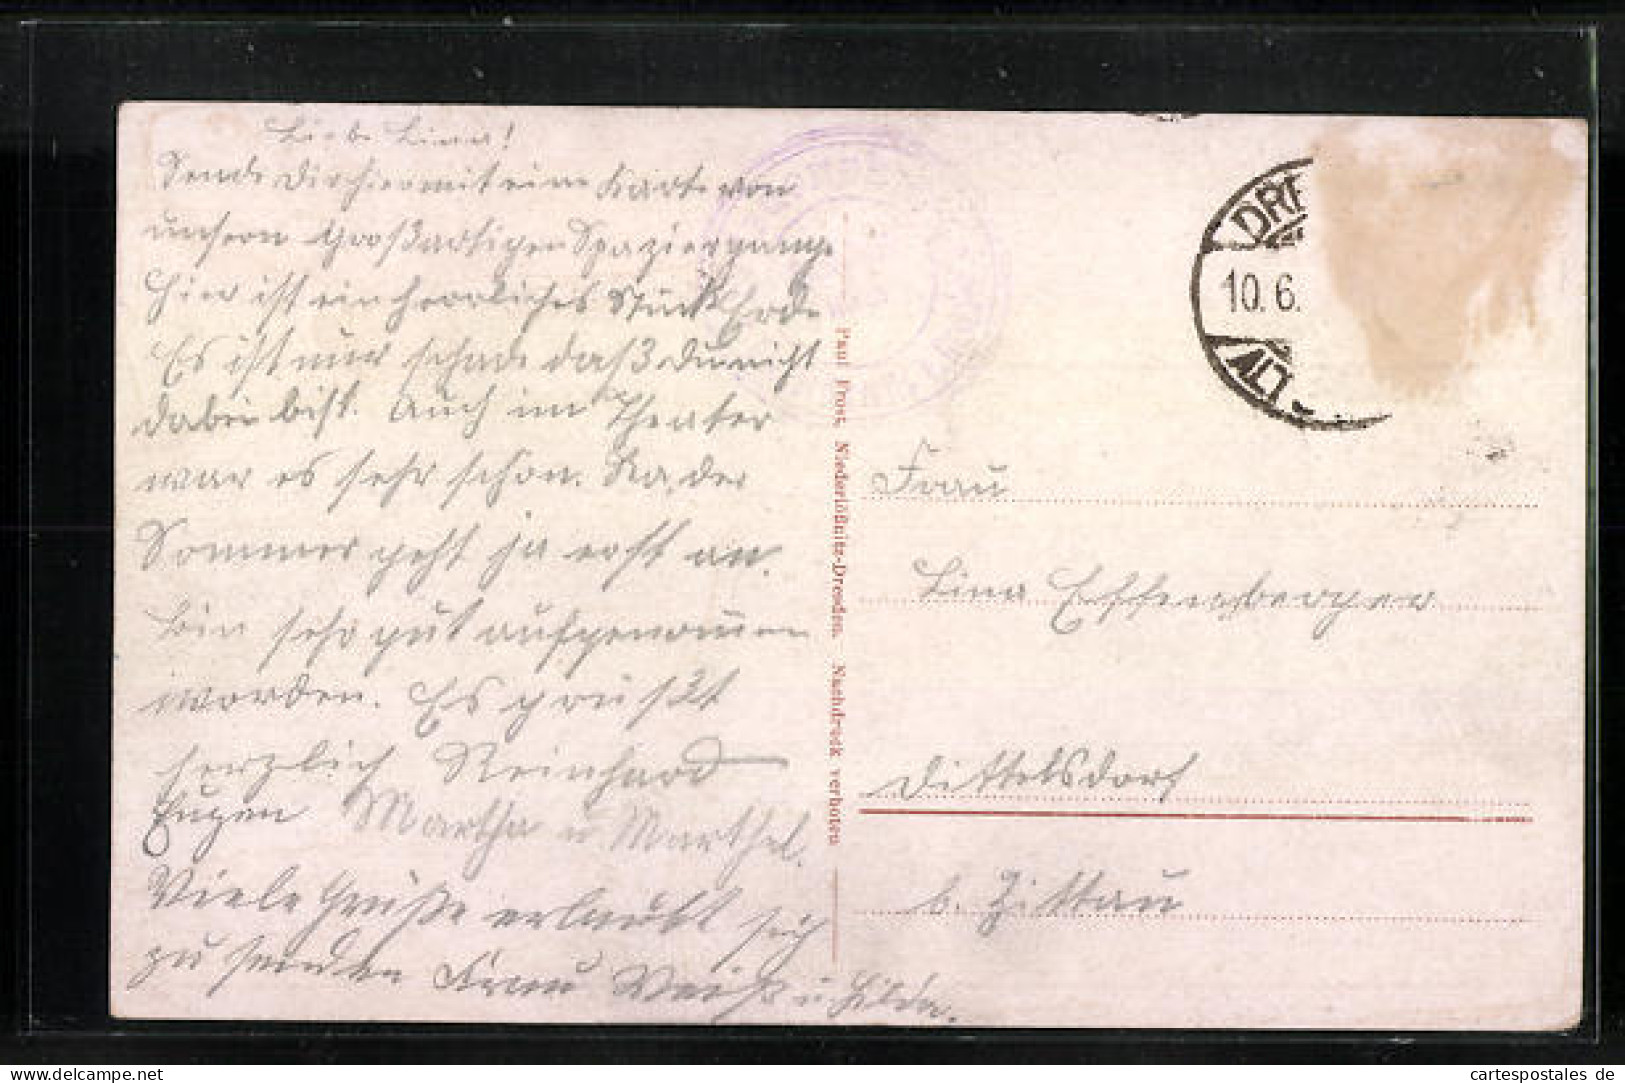 Liebe Lina!
Sende Dir hiermit eine Karte von
unsern Großartigen Spaziergange
Hier ist ein herrliches Stück Erde
Es ist nur schade daß Du nicht
dabei bist. Auch im Theater
war es sehr schön. Na, der
Sommer geht ja erst an.
Bin sehr gut aufgenommen
worden. Es grüßt
herzlich Reinhard
Eugen Martha u Marthel.
Viele Grüße erlaubt sich
zu senden Frau Weiß u Hilda.
Paul Frost, Niederlößnitz-Dresden. Nachdruck verboten
DRE
10. 6.
ALT
Frau
Lina Effenberger
Dittelsdorf
b. Zittau
cartespostales de